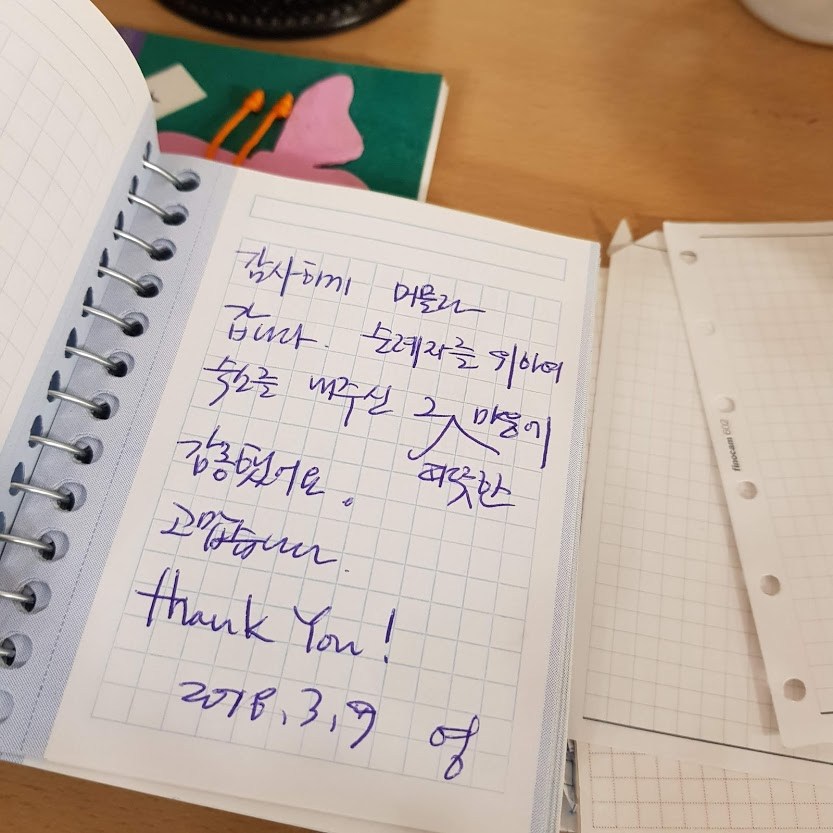 감사하게 머물다
갑니다. 순례자를 위하여
숙소를 내주신 그 따뜻한 마음에
감동했어요.
고맙습니다.
Thank You!
2018. 3. 9 영
finocam ECO2